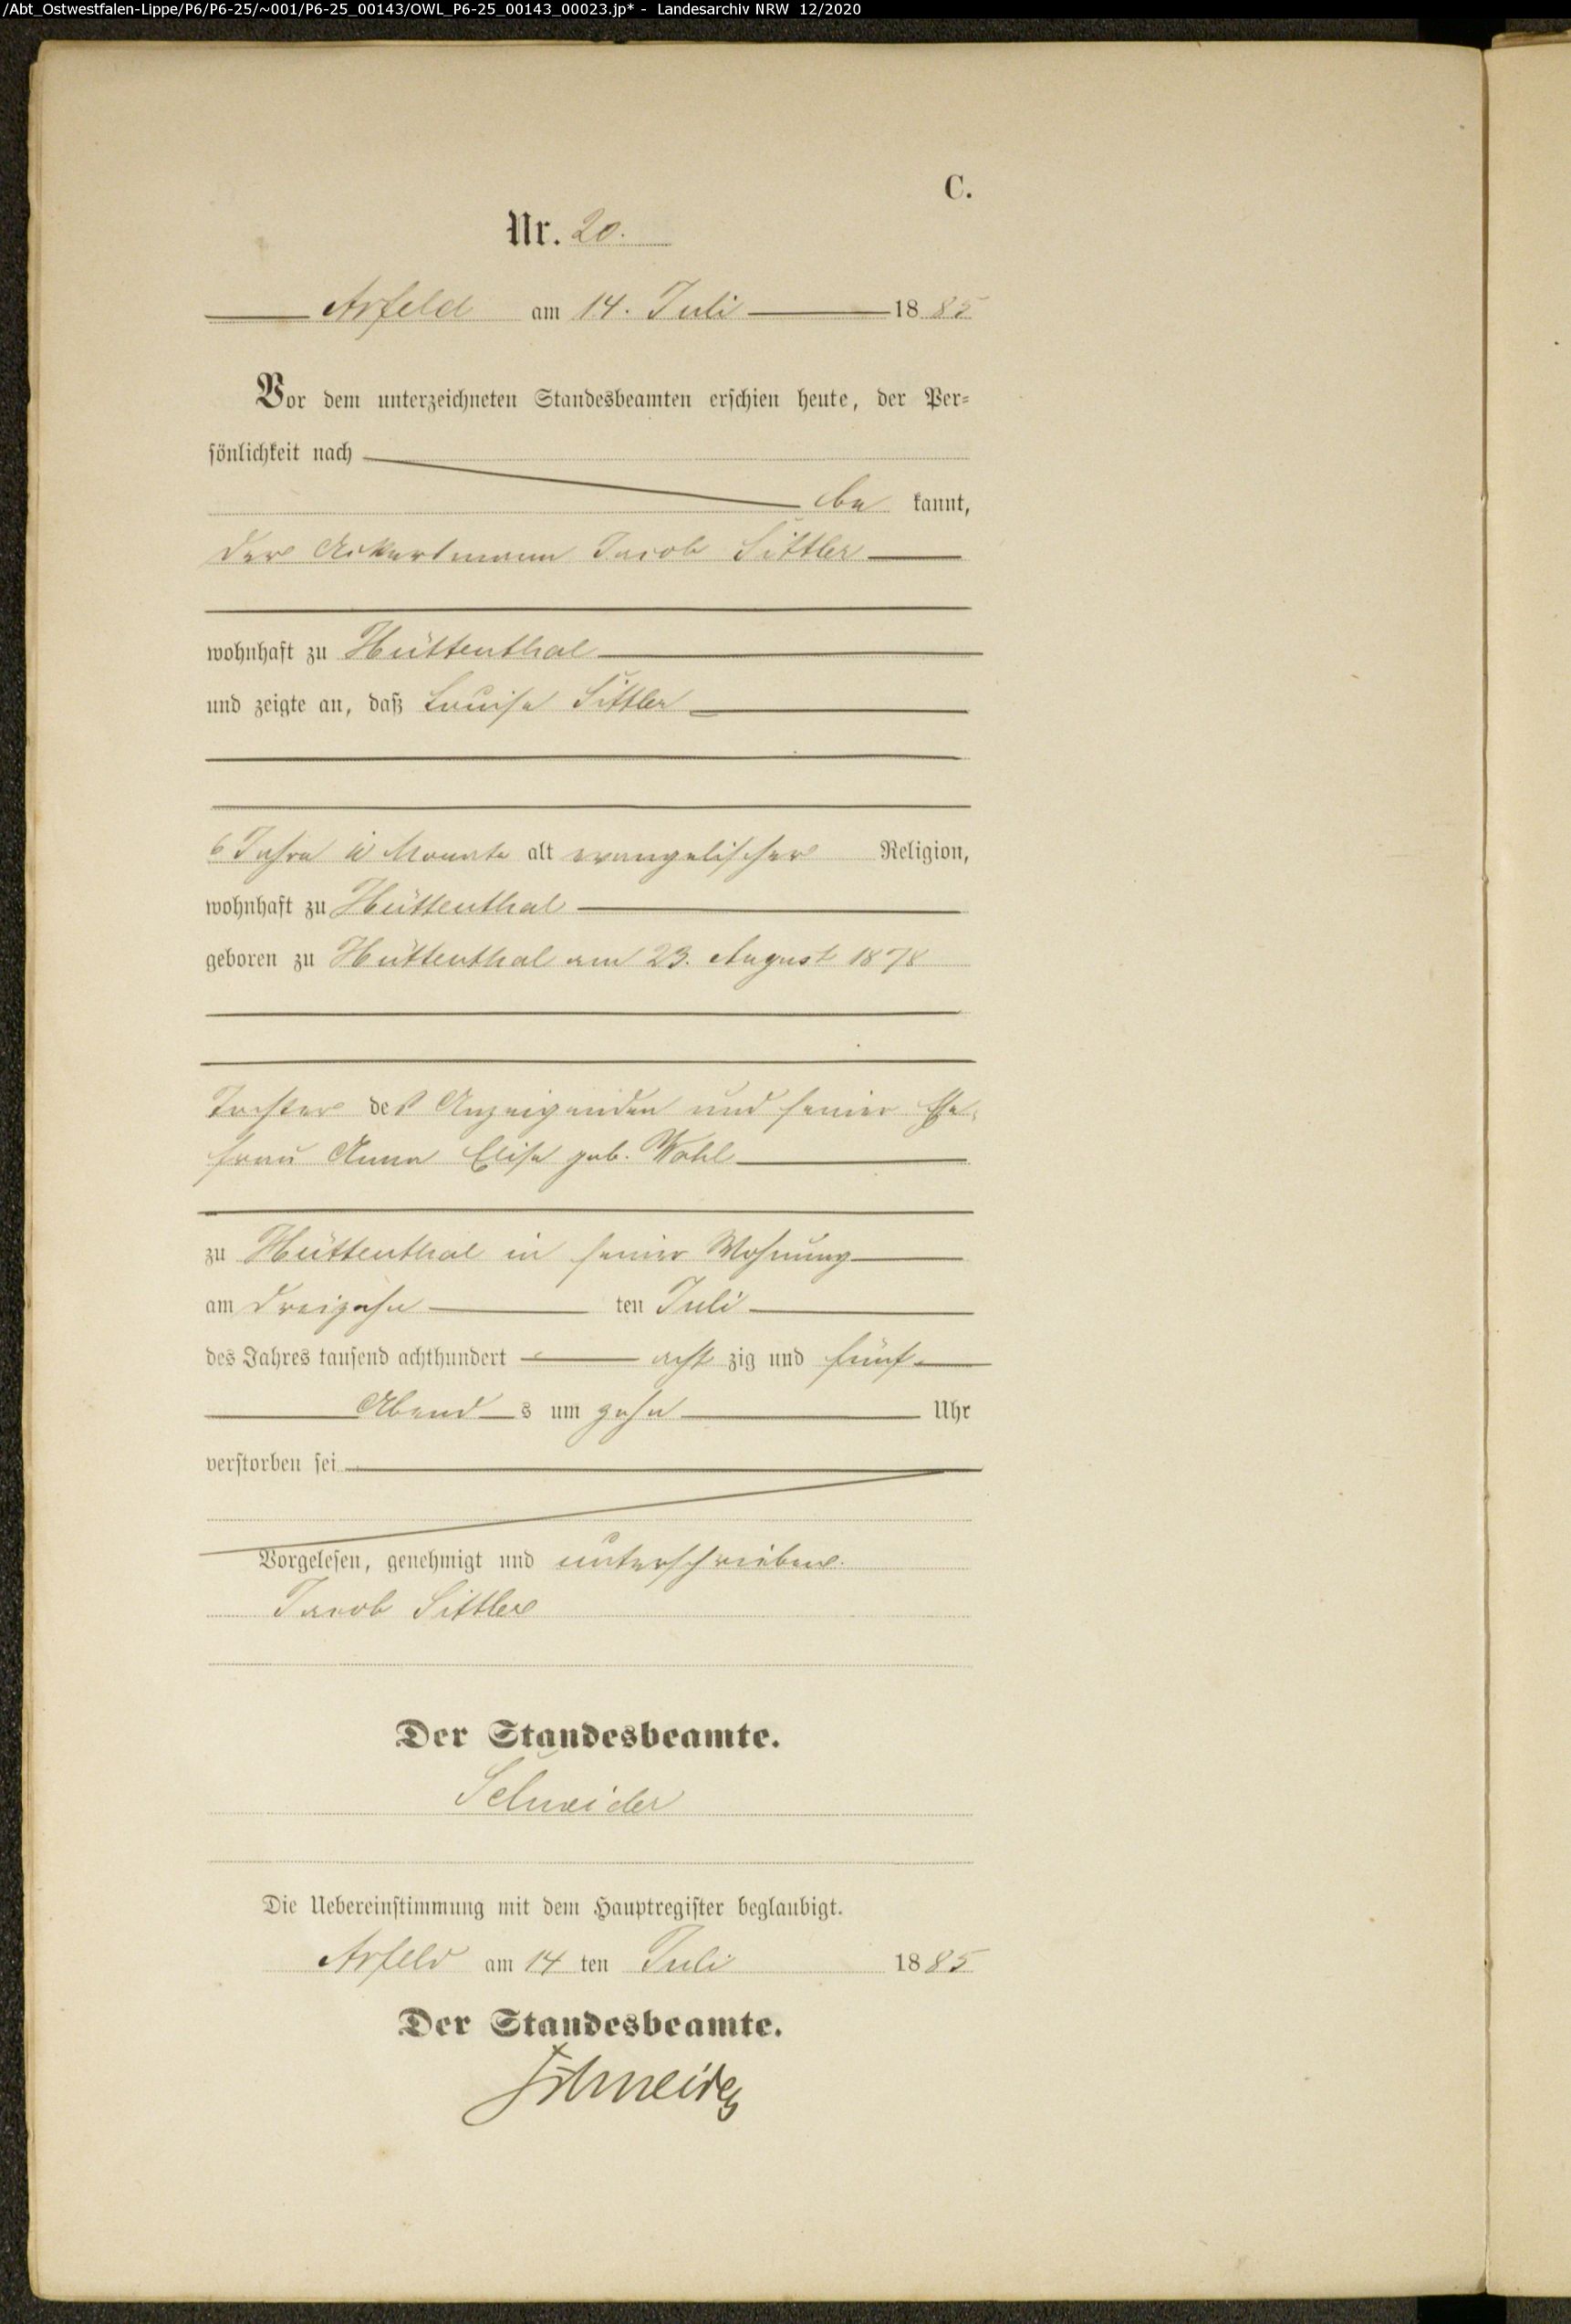 /Abt_Ostwestfalen-Lippe/P6/P6-25/~001/P6-25_00143/OWL_P6-25_00143_00023.jp* - Landesarchiv NRW 12/2020
C.
Nr. 20.
Arfeld am 14. Juli 1885
Vor dem unterzeichneten Standesbeamten erschien heute, der Per-
sönlichkeit nach
be kannt,
der Ackersmann Jacob Sittler
wohnhaft zu Hüttenthal
und zeigte an, daß Louise Sittler
6 Jahre 10 Monate alt evangelischer Religion,
wohnhaft zu Hüttenthal
geboren zu Hüttenthal am 23. August 1878
Tochter des Anzeigenden und seiner Ehe-
frau Anna Elise geb. Wahl
zu Hüttenthal in seiner Wohnung
am dreizehn ten Juli
des Jahres tausend achthundert acht zig und fünf
Abend s um zehn Uhr
verstorben sei
Vorgelesen, genehmigt und unterschrieben.
Jacob Sittler
Der Standesbeamte.
Schneider
Die Uebereinstimmung mit dem Hauptregister beglaubigt.
Arfeld am 14 ten Juli 1885
Der Standesbeamte.
Schneider